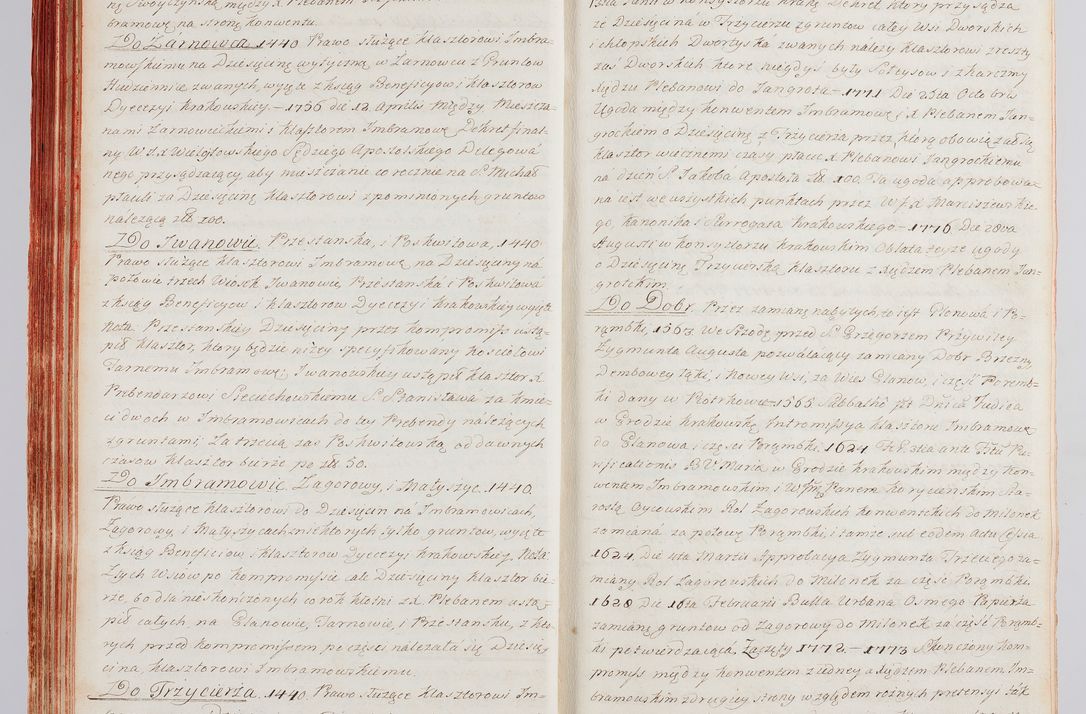 bramowę na stronę konwentu.
Do Zarnowca 1440 Prawo służące klasztorowi Imbra-
mowskiemu na Dziesięcinę wytyczną w Zarnowcu z Gruntow
zwanych, wyięte z ksiąg Beneficyow i klasztorow
Dyecezyi krakowskiey - 1756 die 12 Aprilis między Mieszcza-
nami Zarnowieckiemi i klasztorem Imbramowę Dekret final-
ny W J.X. Wielogłowskiego Sędziego Apostolskiego Delegowa-
nego przysądzaiący, aby mieszczanie co rocznie na S. Michał
płacili za Dziesięcinę klasztorowi z pomienionych gruntow
należącą zł: 100.
Do Iwanowic Przestańska, i Poskwitowa, 1440
Prawo służące klasztorowi Imbramowę na Dziesięciny na
połowie trzech Wiosek Iwanowic, Przestańska i Poskwitowa
z ksiąg Beneficyow i klasztorow Dyecezyi krakowskiey wyięte
Nota: Przestanskiey Dziesięciny przez kompromiss ustą-
pił klasztor, ktory będzie niżey specyfikowany kościołowi
Farnemu Imbramowę; Iwanowskiey ustąpił klasztor X
Prebendarzowi Sieciechowskiemu S. Stanisława za kmie-
ci dwoch w Imbramowicach do tey Prebendy należących
z gruntami. Za trzecią zas Poskwitowską od dawnych
czasow klasztor bierze po zł: 50.
Do Imbramowic Zagorowy, i Małyszyc 1440
Prawo służące klasztorowi do Dziesięcin na Imbramowicach
Zagorowy, i Małyszycach niektorych tylko gruntow, wyięte
z ksiąg Beneficiow i klasztorow Dyecezyi krakowskiey. Nota
Ztych Wsiow po kompromissie całe Dziesięciny klasztor bie-
rze, bo dla nieskończonych co rok kłotni z X Plebanem ustą-
pił całych na Glanowie, Tarnowie, i Przestansku, z kto-
rych przed kompromissem po części należała się Dziesię-
cina klasztorowi Imbramowskiemu.
Do Trzycierza 1440 Prawo służące klasztorowi Im-
ze Dziesięcina w Trzycierzu z gruntow całey Wsi Dworskich
i chłopskich Dworzyska zwanych należy klasztorowi z reszty
zaś Dworskich ktore niegdyś były Sołtysow i z karczmy
Xiędzu Plebanowi do Jangrota - 1771 Die Octobra
Ugoda między konwentem Imbramowę i X Plebanem Jan-
grockiem o Dziesięcinę z Trzycierza przez ktorą obowiązał się
klasztor wiecznemi czasy płacić X Plebanowi Jangrockiemu
na dzień S. Jakoba Apostoła zł: 100. Ta ugoda approbowa-
na iest we wszystkich punktach przez W J X Marciszewskie-
go, kanonika i Surrogata krakowskiego - 1776 Die 28va
Augusti w konsystorzu krakowskim Oblata teyże ugody
o Dziesięcinę Trzycierską klasztoru z Xiędzem Plebanem Jan-
grotckim.
Do Dobr Przez zamianę nabytych, to iest Glenowa i Po-
rąmbki, 1563 We Srodę przed S. Grzegorzem Przywiley
Zygmunta Augusta pozwalaiący zamiany Dobr Brzezny
Dembowey łąki, i Nowey Wsi, za Wies Glanow, i część Poremb-
ki dany w Piotrkowie - 1565 Sabbatho pt Dnica Judica
w Grodzie krakowskę Intromissya klasztoru Imbramowę
do Glanowa i części Porąmbki. 1624 Fer ante Festu Pu-
rificationis B V Maria w Grodzie krakowskim między kon-
wentem Imbramowskim i W Panem korycinskim Sta-
rostą Oycowskim Rol Zagorowskich konwentskich do Milonek
zamiana za połowę Porąmbki, i tamże sub eodem Actu Cessia
1624 Die Martii Approbacya Zygmunta Trzeciego za-
miany Rol Zagorowskich do Milonek za część Porąmbki.
1628 Die 16ta Februarii Bulla Urbana Osmego Papieża
zamianę gruntow od Zagorowy do Milonek za część Porąmb-
ki potwierdzaiąca. Zaczęty 1772 - 1773 Skonczony kom-
promiss między konwentem z iedney a Xiędzem Plebanem Im-
bramowskim z drugiey strony względem rożnych pretensyi tak